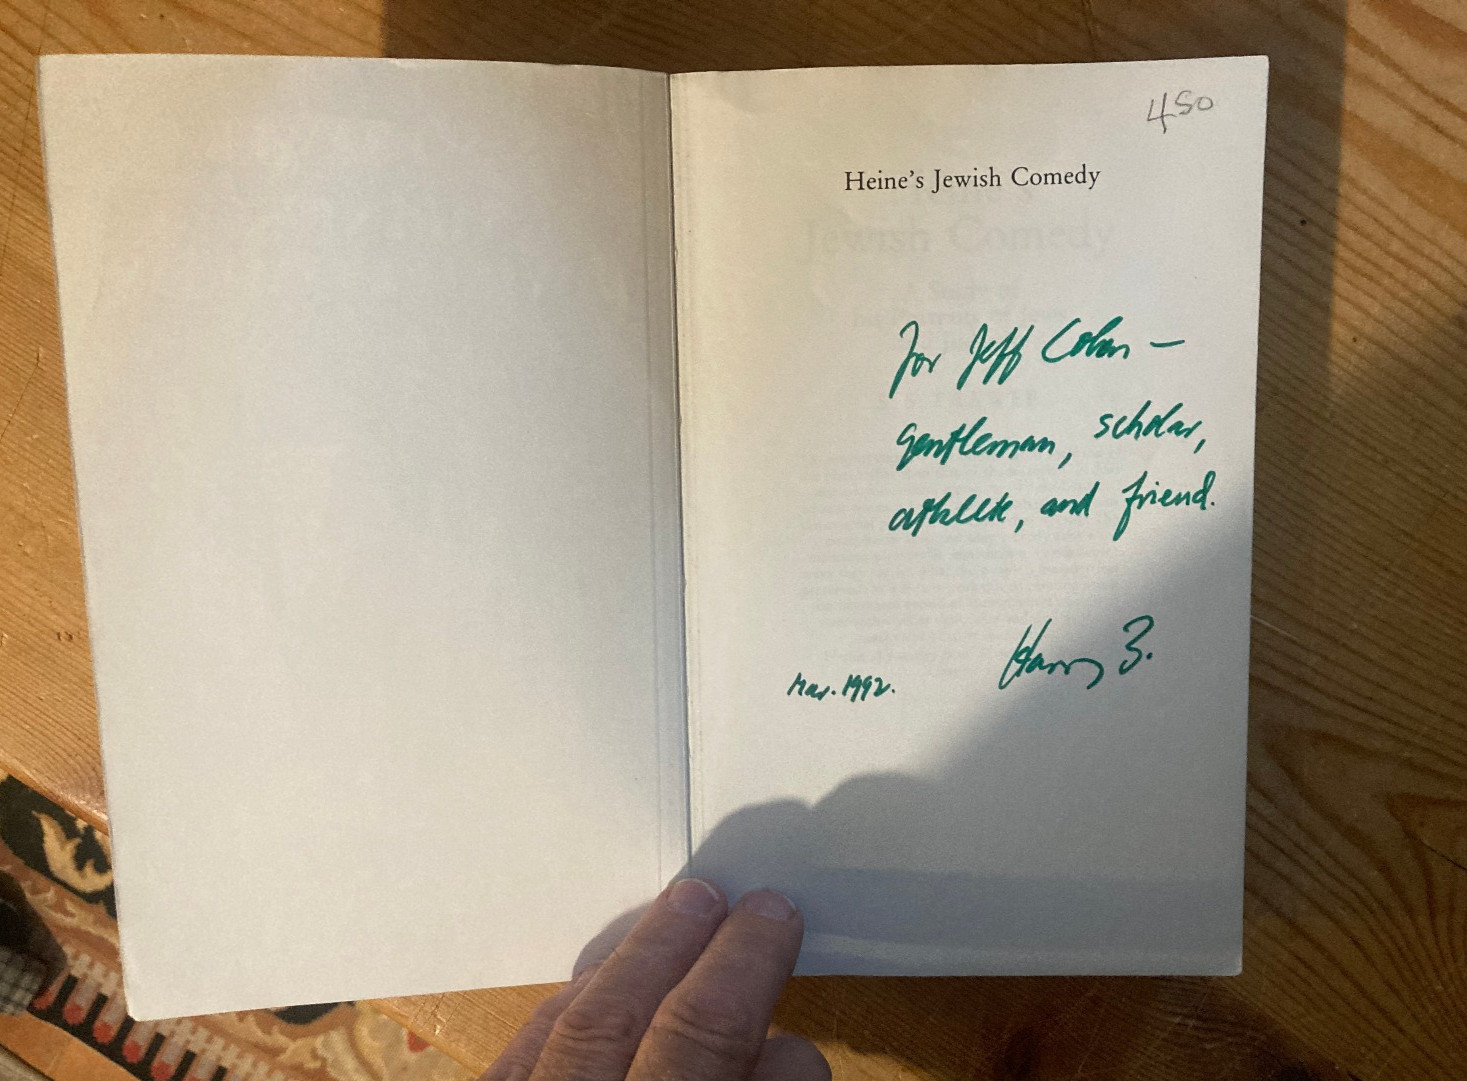 450
Heine's Jewish Comedy
For Jeff Cohen —
gentleman, scholar,
athlete, and friend.
Harry Z.
Mar. 1992.